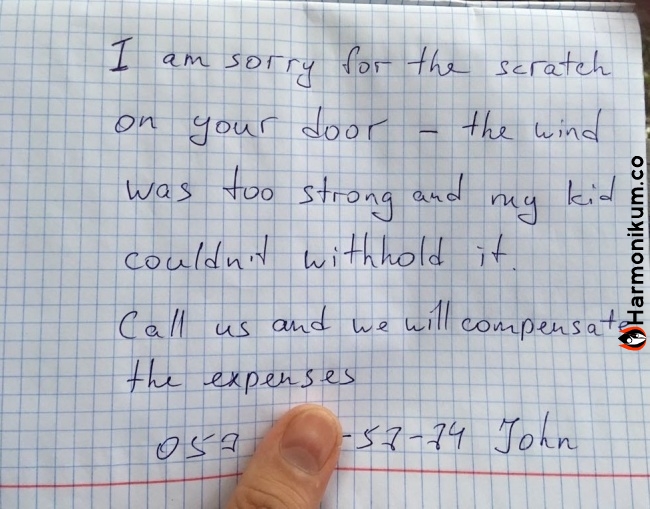 I am sorry for the scratch
on your door – the wind
was too strong and my kid
couldn't withhold it.
Call us and we will compensate
the expenses
057 -57-74 John
Harmonikum.co